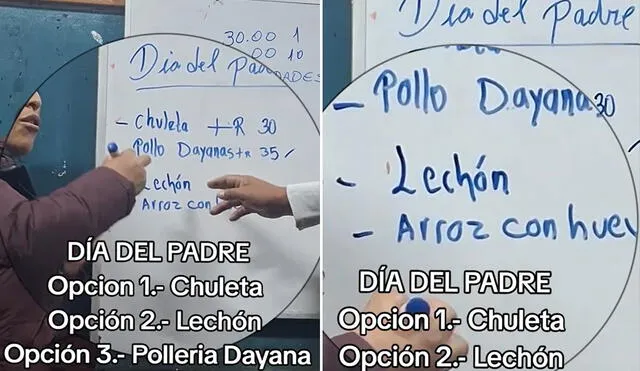 30.00 1
00 10
Dia del Pad
DADES
- Chuleta + R 30
- Pollo Dayanas + R 35 /
Lechón
Arroz con
DÍA DEL PADRE
Opcion 1.- Chuleta
Opción 2.- Lechón
Opción 3.- Polleria Dayana
Dia del Padre
- Pollo Dayana 30
- Lechón
- Arroz con huev
DÍA DEL PADRE
Opcion 1.- Chuleta
Opción 2.- Lechón